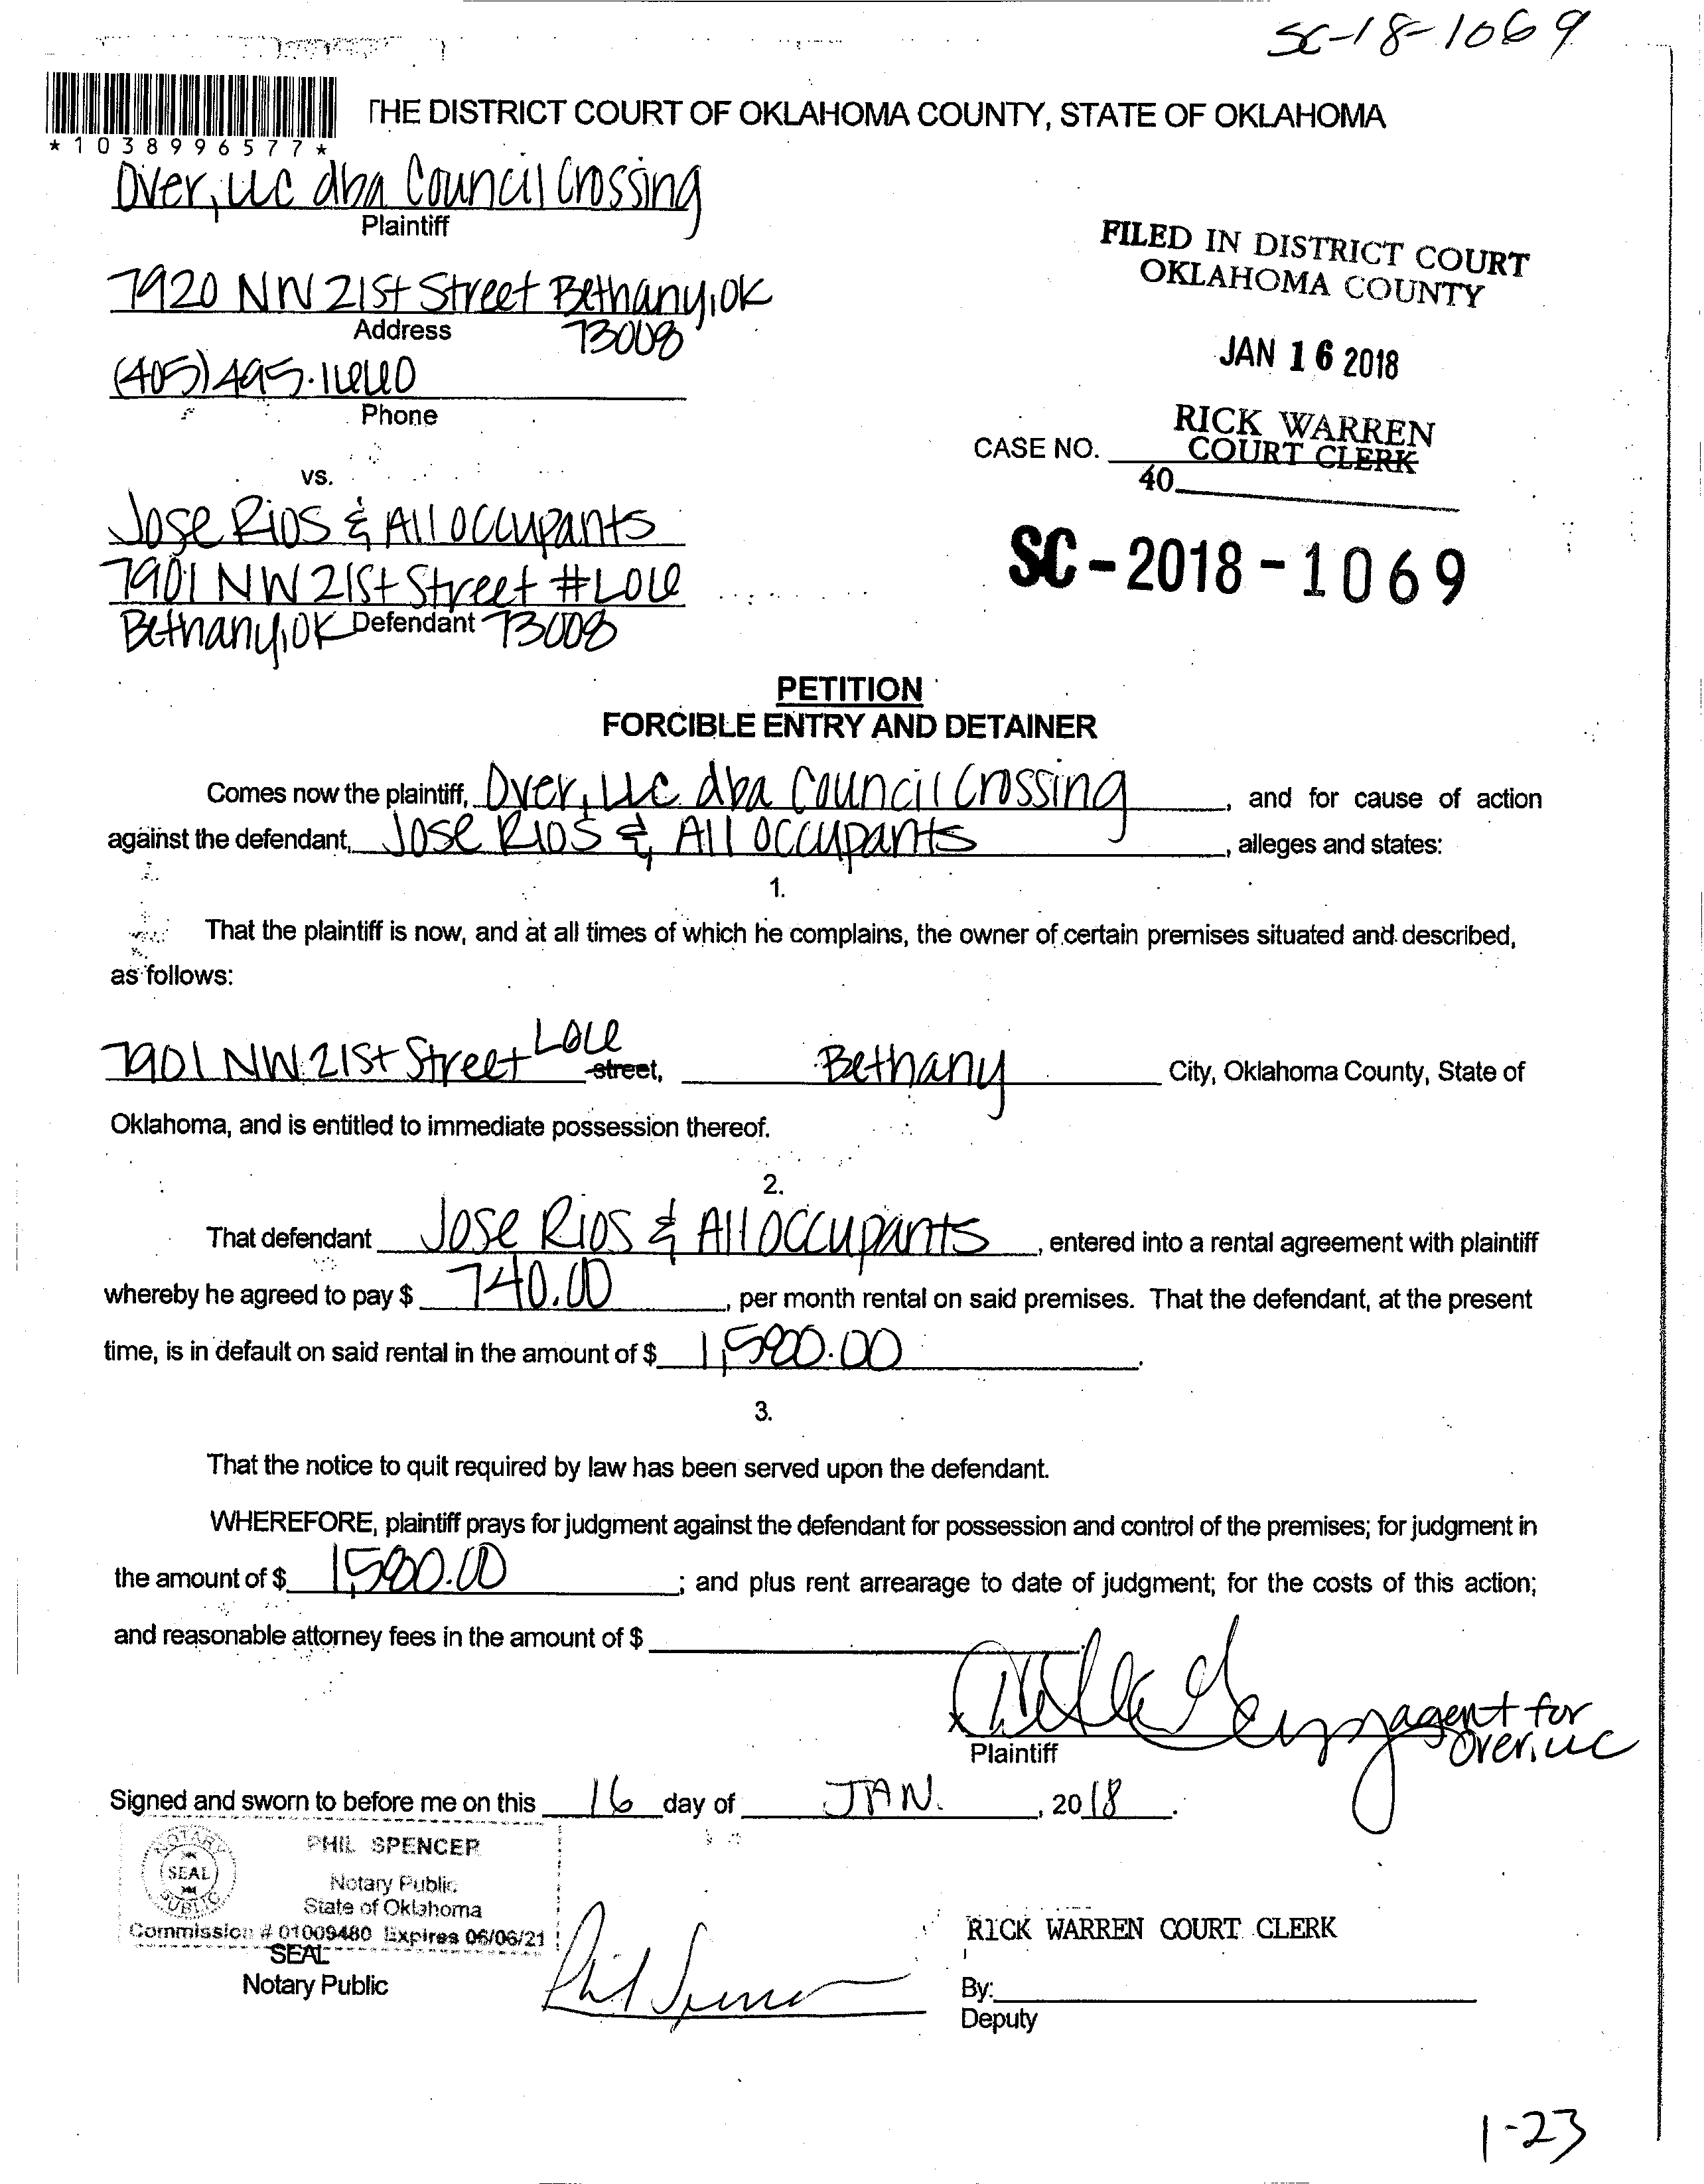 SC-18-1069
THE DISTRICT COURT OF OKLAHOMA COUNTY, STATE OF OKLAHOMA
*1038996577*
Over, LLC dba Council Crossing
Plaintiff
FILED IN DISTRICT COURT
OKLAHOMA COUNTY
7920 NW 21st Street Bethany, OK
Address 73008
JAN 16 2018
(405) 495.1660
Phone
RICK WARREN
CASE NO. COURT CLERK
40
vs.
Jose Rios & All Occupants
7901 NW 21st Street #L06
Bethany, OK Defendant 73008
SC-2018-1069
PETITION
FORCIBLE ENTRY AND DETAINER
Comes now the plaintiff, Over, LLC dba Council Crossing, and for cause of action
against the defendant, Jose Rios & All Occupants, alleges and states:
1.
That the plaintiff is now, and at all times of which he complains, the owner of certain premises situated and described,
as follows:
7901 NW 21st Street L06 street, Bethany City, Oklahoma County, State of
Oklahoma, and is entitled to immediate possession thereof.
2.
That defendant Jose Rios & All Occupants, entered into a rental agreement with plaintiff
whereby he agreed to pay $ 740.00, per month rental on said premises. That the defendant, at the present
time, is in default on said rental in the amount of $
3.
That the notice to quit required by law has been served upon the defendant.
WHEREFORE, plaintiff prays for judgment against the defendant for possession and control of the premises; for judgment in
the amount of $ ; and plus rent arrearage to date of judgment; for the costs of this action;
and reasonable attorney fees in the amount of $
x agent for
Plaintiff Over, LLC
Signed and sworn to before me on this 16 day of JAN., 2018.
NOTARY PUBLIC SEAL
PHIL SPENCER
Notary Public
State of Oklahoma
Commission # 01009480 Expires 06/06/21
SEAL
Notary Public
Phil Spencer
RICK WARREN COURT CLERK
By:
Deputy
1-23